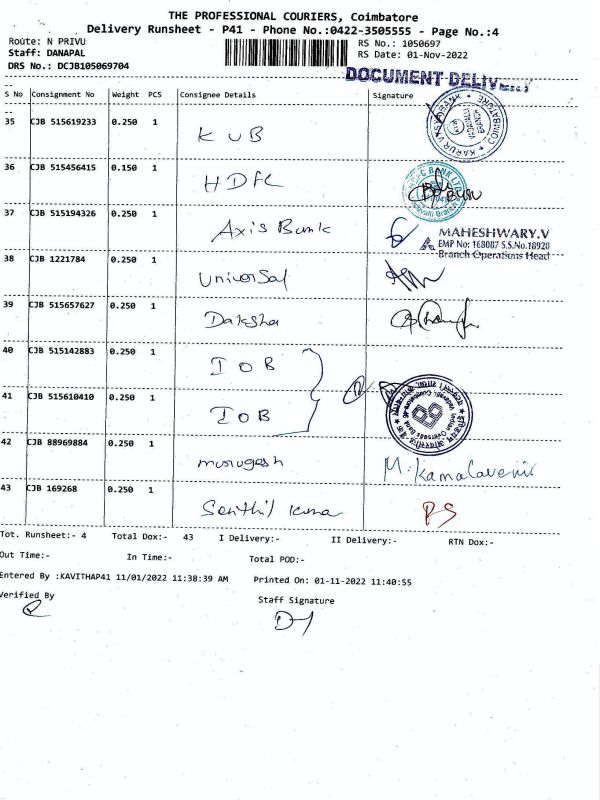 THE PROFESSIONAL COURIERS, Coimbatore
Delivery Runsheet - P41 - Phone No.:0422-3505555 - Page No.:4
Route: N PRIVU
RS No.: 1050697
Staff: DANAPAL
RS Date: 01-Nov-2022
DRS No.: DCJB105069704
DOCUMENT DELIV
S No Consignment No Weight PCS Consignee Details Signature
35 CJB 515619233 0.250 1 KUB
36 CJB 515456415 0.150 1 HDFC
37 CJB 515194326 0.250 1 Axis Bank
MAHESHWARY.V
EMP No: 168087 S.S.No.18920
Branch Operations Head
38 CJB 1221784 0.250 1 Universal
39 CJB 515657627 0.250 1 Daksha
40 CJB 515142883 0.250 1 IOB
41 CJB 515610410 0.250 1 IOB
42 CJB 88969884 0.250 1 murugesh M. Kamalaveni
43 CJB 169268 0.250 1 Senthil Kuma PS
Tot. Runsheet:- 4 Total Dox:- 43 I Delivery:- II Delivery:- RTN Dox:-
Out Time:- In Time:- Total POD:-
Entered By :KAVITHAP41 11/01/2022 11:38:39 AM Printed On: 01-11-2022 11:40:55
Verified By Staff Signature